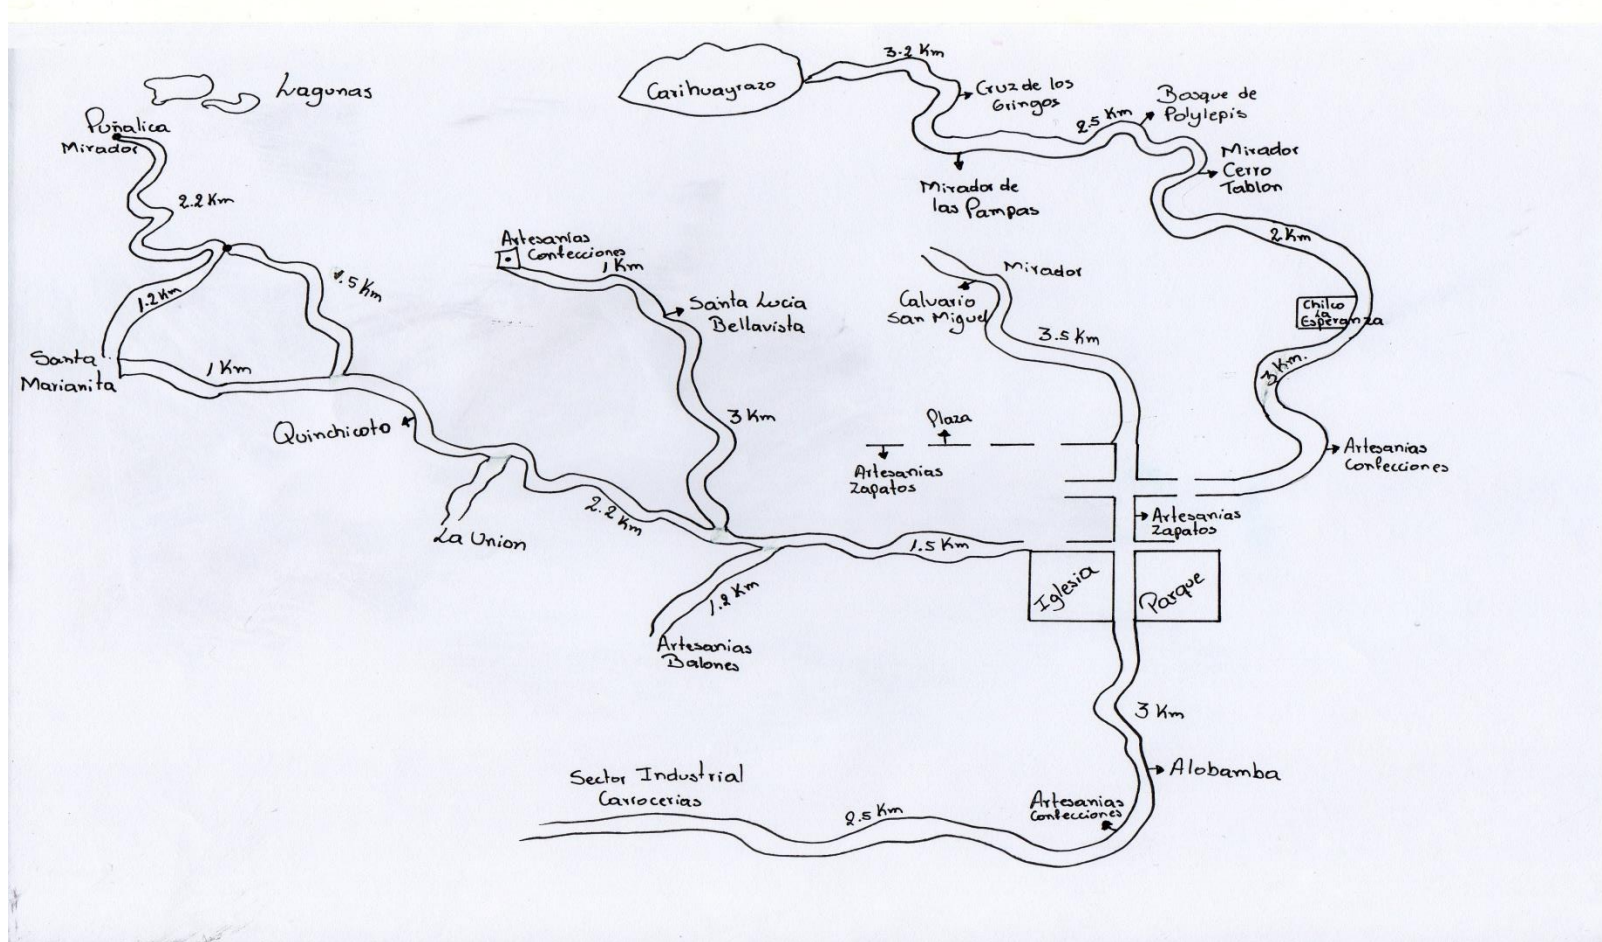 Lagunas
Puñalica
Mirador
2.2 Km
1.2 Km
1.5 Km
Santa
Marianita
1 Km
Quinchicoto
La Union
2.2 Km
Artesanías
Confecciones
1 Km
Santa Lucia
Bellavista
3 Km
1.5 Km
1.2 Km
Artesanias
Balones
Carihuayrazo
3.2 Km
Cruz de los
Gringos
Mirador de
las Pampas
2.5 Km
Bosque de
Polylepis
Mirador
Cerro
Tablon
2 Km
Chilco
La
Esperanza
3 Km.
Artesanias
Confecciones
Mirador
Calvario
San Miguel
3.5 Km
Plaza
Artesanias
Zapatos
Artesanias
Zapatos
Iglesia
Parque
3 Km
Alobamba
Artesanias
Confecciones
2.5 Km
Sector Industrial
Carrocerias